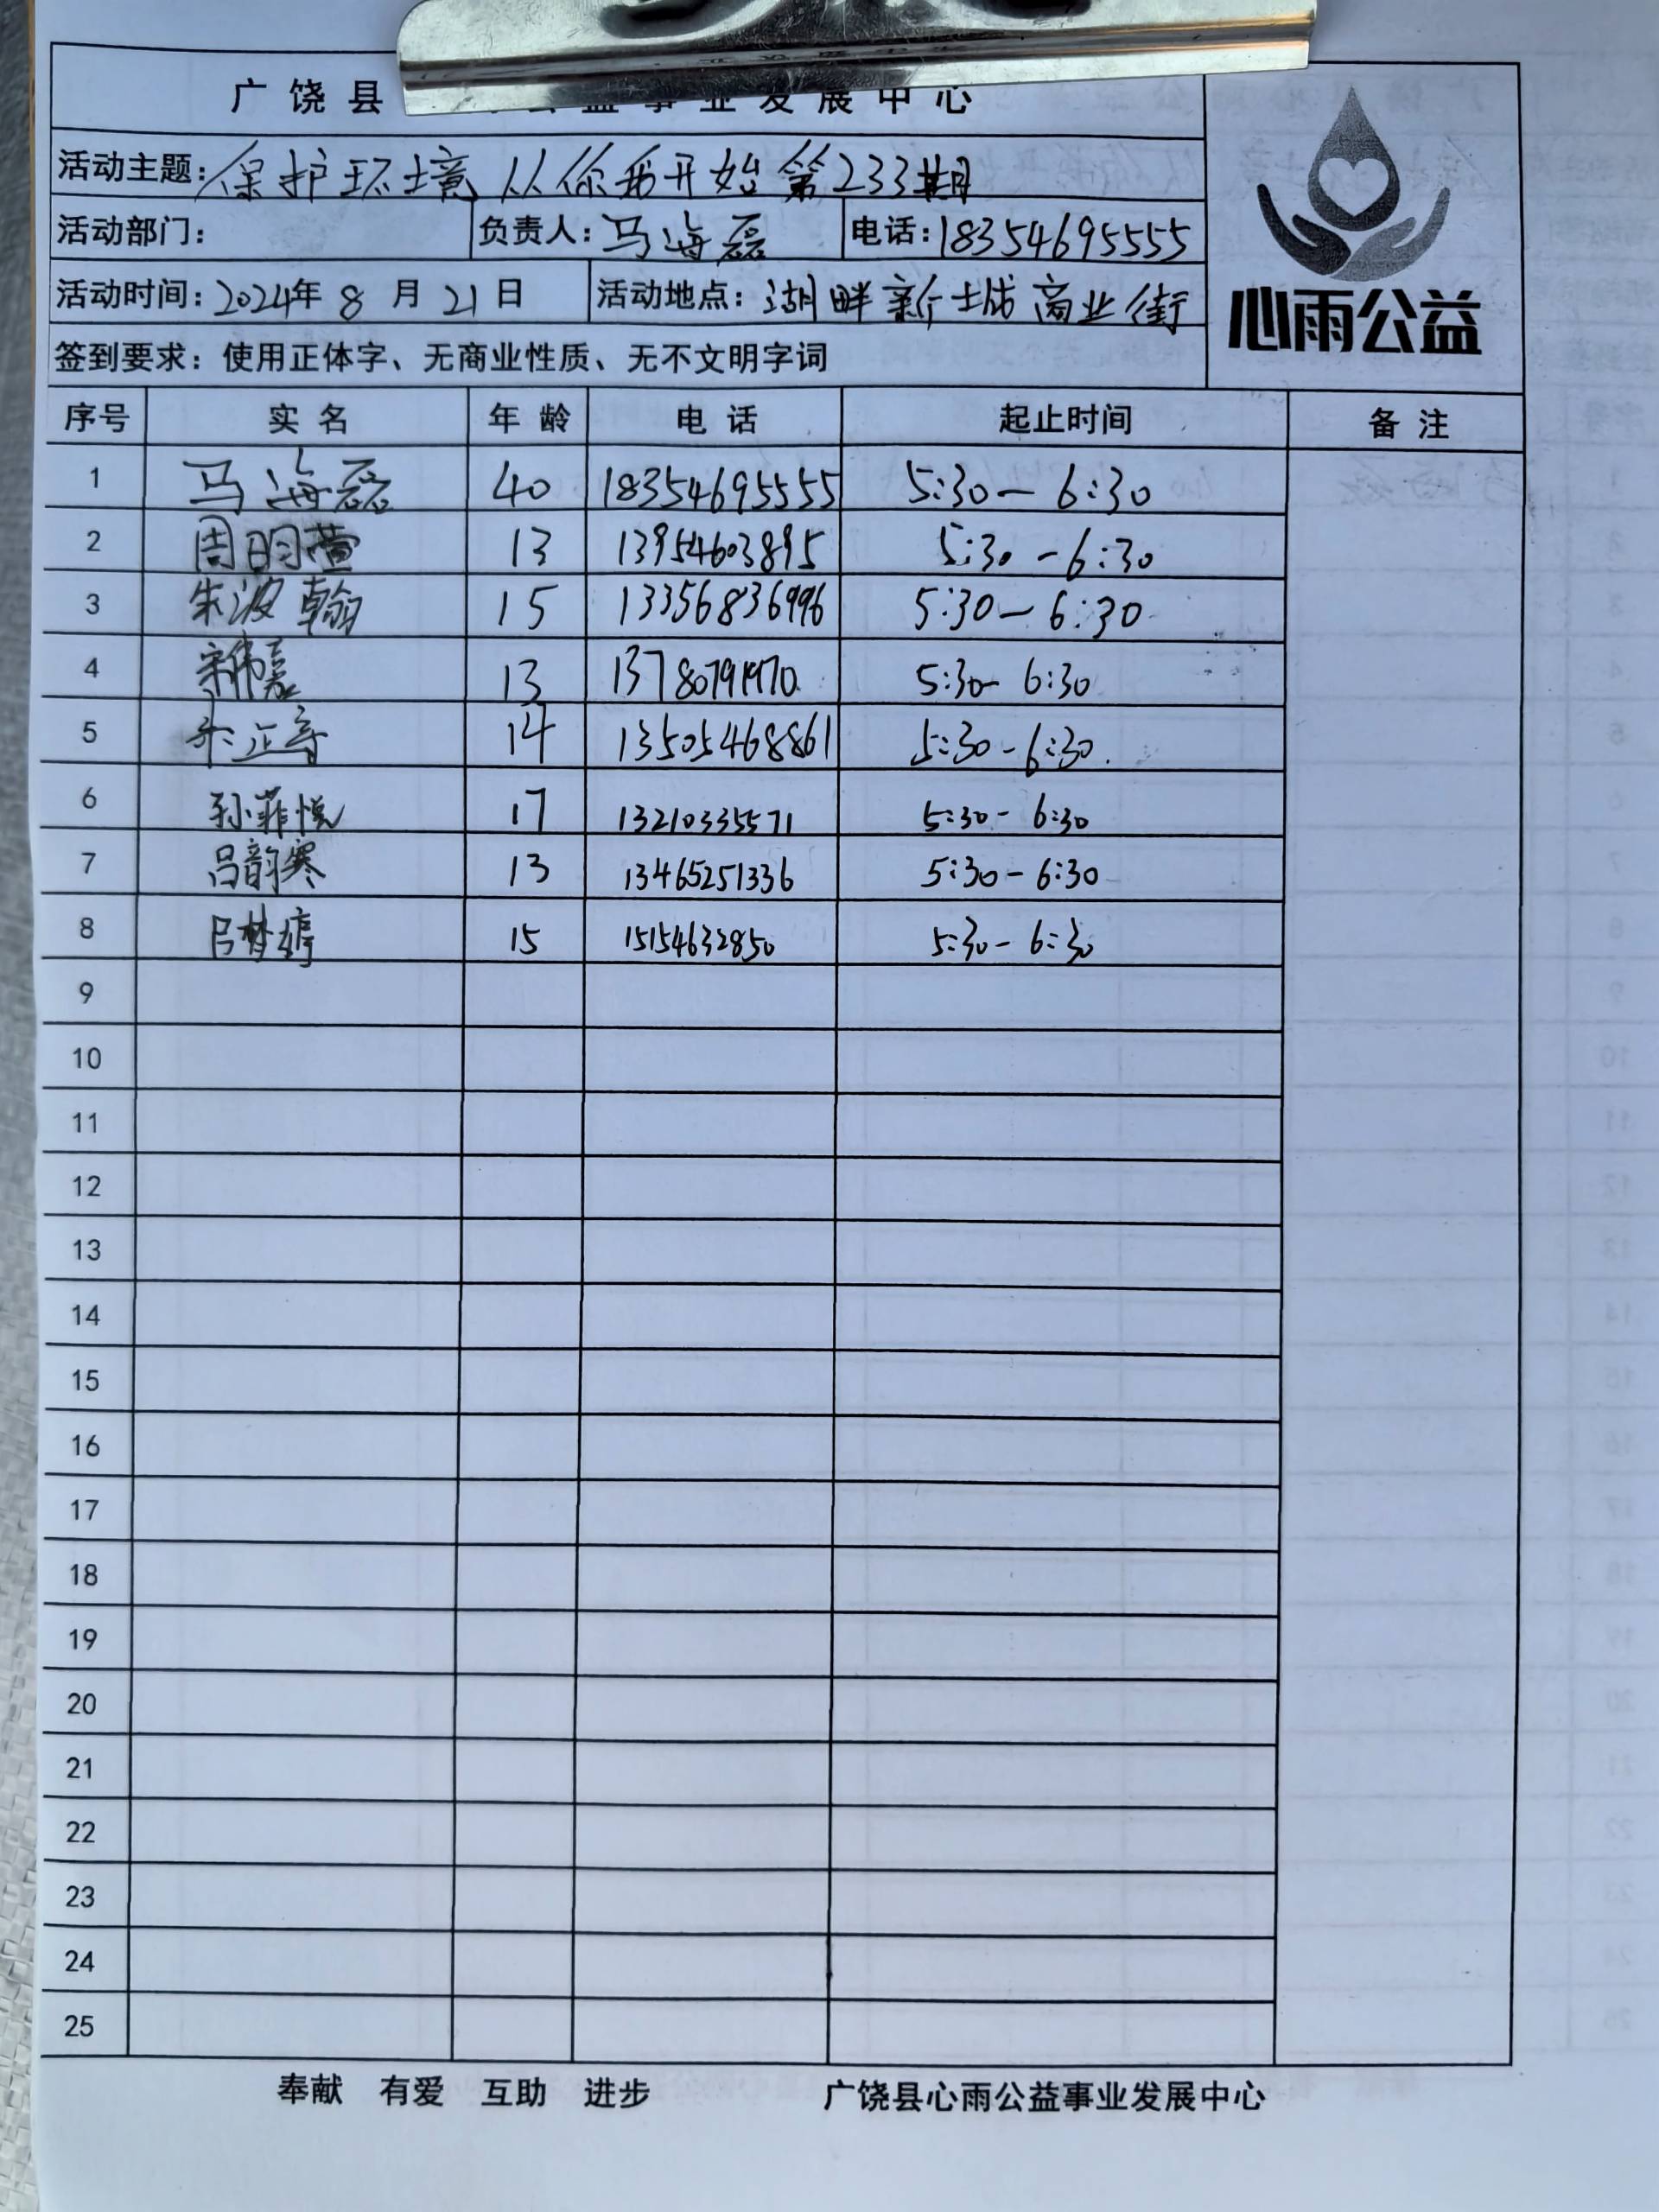 广饶县 公益事业发展中心
活动主题：保护环境 从你我开始 第233期
活动部门： 负责人：马海磊 电话：18354695555
活动时间：2024年 8 月 21 日 活动地点：湖畔新城商业街
心雨公益
签到要求：使用正体字、无商业性质、无不文明字词
序号 实名 年龄 电话 起止时间 备注
1 马海磊 40 18354695555 5:30－6:30
2 周明萱 13 13954603895 5:30－6:30
3 朱波翰 15 13356836996 5:30－6:30
4 宋伟嘉 13 5:30－6:30
5 14 13505468861 5:30－6:30.
6 孙菲悦 17 13210335571 5:30－6:30
7 吕韵寒 13 13465251336 5:30－6:30
8 吕梦婷 15 15154632850 5:30－6:30
9
10
11
12
13
14
15
16
17
18
19
20
21
22
23
24
25
奉献 有爱 互助 进步 广饶县心雨公益事业发展中心